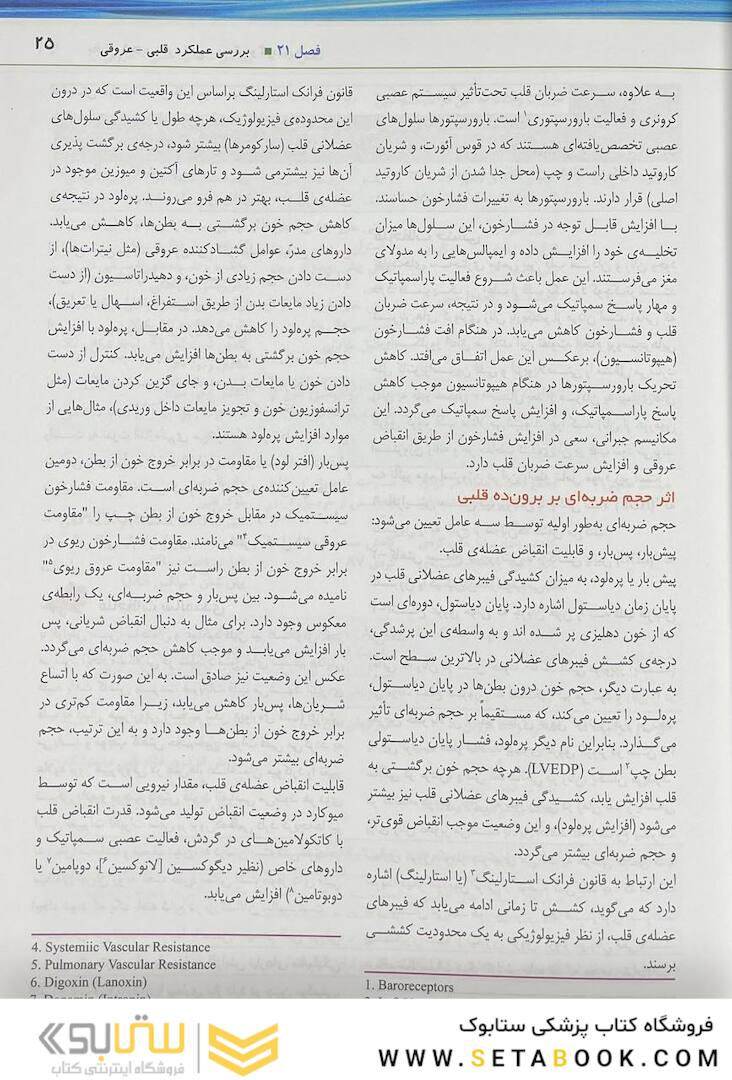 ۲۵
فصل ۲۱ ■ بررسی عملکرد قلبی - عروقی
به علاوه، سرعت ضربان قلب تحت‌تأثیر سیستم عصبی
کرونری و فعالیت بارورسپتوری۱ است. بارورسپتورها سلول‌های
عصبی تخصص‌یافته‌ای هستند که در قوس آئورت، و شریان
کاروتید داخلی راست و چپ (محل جدا شدن از شریان کاروتید
اصلی) قرار دارند. بارورسپتورها به تغییرات فشارخون حساسند.
با افزایش قابل توجه در فشارخون، این سلول‌ها میزان
تخلیه‌ی خود را افزایش داده و ایمپالس‌هایی را به مدولای
مغز می‌فرستند. این عمل باعث شروع فعالیت پاراسمپاتیک
و مهار پاسخ سمپاتیک می‌شود و در نتیجه، سرعت ضربان
قلب و فشارخون کاهش می‌یابد. در هنگام افت فشارخون
(هیپوتانسیون)، برعکس این عمل اتفاق می‌افتد. کاهش
تحریک بارورسپتورها در هنگام هیپوتانسیون موجب کاهش
پاسخ پاراسمپاتیک، و افزایش پاسخ سمپاتیک می‌گردد. این
مکانیسم جبرانی، سعی در افزایش فشارخون از طریق انقباض
عروقی و افزایش سرعت ضربان قلب دارد.
اثر حجم ضربه‌ای بر برون‌ده قلبی
حجم ضربه‌ای به‌طور اولیه توسط سه عامل تعیین می‌شود:
پیش‌بار، پس‌بار، و قابلیت انقباض عضله‌ی قلب.
پیش بار یا پره‌لود، به میزان کشیدگی فیبرهای عضلانی قلب در
پایان زمان دیاستول اشاره دارد. پایان دیاستول، دوره‌ای است
که از خون دهلیزی پر شده اند و به واسطه‌ی این پرشدگی،
درجه‌ی کشش فیبرهای عضلانی در بالاترین سطح است.
به عبارت دیگر، حجم خون درون بطن‌ها در پایان دیاستول،
پره‌لود را تعیین می‌کند، که مستقیماً بر حجم ضربه‌ای تأثیر
می‌گذارد. بنابراین نام دیگر پره‌لود، فشار پایان دیاستولی
بطن چپ۲ است (LVEDP). هرچه حجم خون برگشتی به
قلب افزایش یابد، کشیدگی فیبرهای عضلانی قلب نیز بیشتر
می‌شود (افزایش پره‌لود)، و این وضعیت موجب انقباض قوی‌تر،
و حجم ضربه‌ای بیشتر می‌گردد.
این ارتباط به قانون فرانک استارلینگ۳ (یا استارلینگ) اشاره
دارد که می‌گوید، کشش تا زمانی ادامه می‌یابد که فیبرهای
عضله‌ی قلب، از نظر فیزیولوژیکی به یک محدودیت کششی
برسند.
1. Baroreceptors
قانون فرانک استارلینگ براساس این واقعیت است که در درون
این محدوده‌ی فیزیولوژیک، هرچه طول یا کشیدگی سلول‌های
عضلانی قلب (سارکومرها) بیشتر شود، درجه‌ی برگشت پذیری
آن‌ها نیز بیشترمی شود و تارهای آکتین و میوزین موجود در
عضله‌ی قلب، بهتر در هم فرو می‌روند. پره‌لود در نتیجه‌ی
کاهش حجم خون برگشتی به بطن‌ها، کاهش می‌یابد.
داروهای مدرّ، عوامل گشادکننده عروقی (مثل نیترات‌ها)، از
دست دادن حجم زیادی از خون، و دهیدراتاسیون (از دست
دادن زیاد مایعات بدن از طریق استفراغ، اسهال یا تعریق)،
حجم پره‌لود را کاهش می‌دهد. در مقابل، پره‌لود با افزایش
حجم خون برگشتی به بطن‌ها افزایش می‌یابد. کنترل از دست
دادن خون یا مایعات بدن، و جای گزین کردن مایعات (مثل
ترانسفوزیون خون و تجویز مایعات داخل وریدی)، مثال‌هایی از
موارد افزایش پره‌لود هستند.
پس‌بار (افتر لود) یا مقاومت در برابر خروج خون از بطن، دومین
عامل تعیین‌کننده‌ی حجم ضربه‌ای است. مقاومت فشارخون
سیستمیک در مقابل خروج خون از بطن چپ را "مقاومت
عروقی سیستمیک۴" می‌نامند. مقاومت فشارخون ریوی در
برابر خروج خون از بطن راست نیز "مقاومت عروق ریوی۵"
نامیده می‌شود. بین پس‌بار و حجم ضربه‌ای، یک رابطه‌ی
معکوس وجود دارد. برای مثال به دنبال انقباض شریانی، پس
بار افزایش می‌یابد و موجب کاهش حجم ضربه‌ای می‌گردد.
عکس این وضعیت نیز صادق است. به این صورت که با اتساع
شریان‌ها، پس‌بار کاهش می‌یابد، زیرا مقاومت کم‌تری در
برابر خروج خون از بطن‌ها وجود دارد و به این ترتیب، حجم
ضربه‌ای بیشتر می‌شود.
قابلیت انقباض عضله‌ی قلب، مقدار نیرویی است که توسط
میوکارد در وضعیت انقباض تولید می‌شود. قدرت انقباض قلب
با کاتکولامین‌های در گردش، فعالیت عصبی سمپاتیک و
داروهای خاص (نظیر دیگوکسین [لانوکسین۶]، دوپامین۷ یا
دوبوتامین۸) افزایش می‌یابد.
4. Systemiic Vascular Resistance
5. Pulmonary Vascular Resistance
6. Digoxin (Lanoxin)
7. Dopamin (Intropin)
فروشگاه کتاب پزشکی ستابوک
WWW.SETABOOK.COM
ستابوک
فروشگاه اینترنتی کتاب